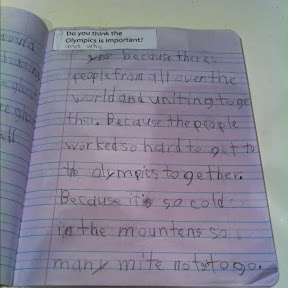 Do you think the
Olympics is important?
and why
yes because there's
people from all over the
world and uniting toge
ther. Because the people
worked so hard to get to
th olympics together.
Because it's so cold
in the mountens so
many mite not to go.
all